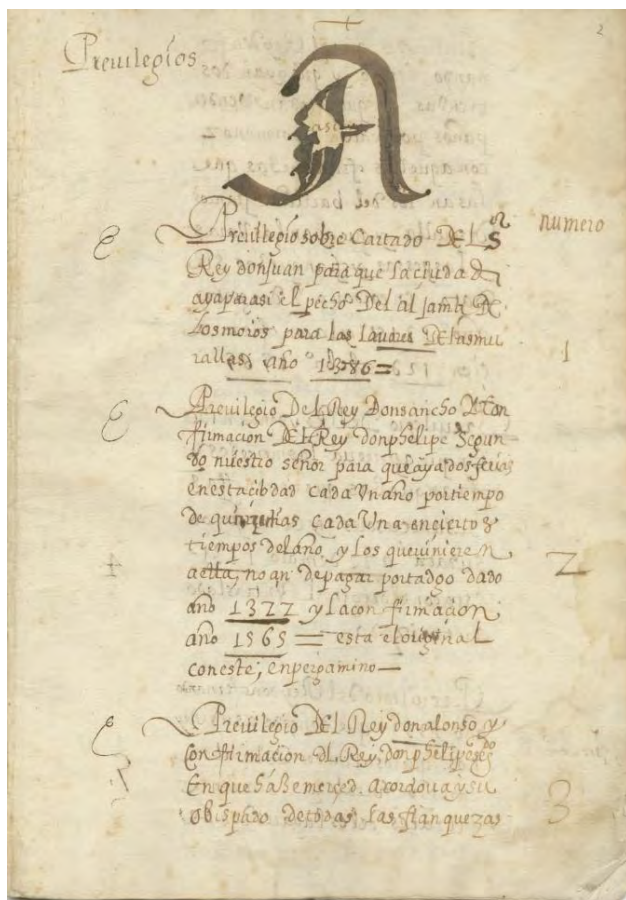 2
Previlegios
A
Previllegio sobre Cartado DEL S.or
numero
Rey don Juan para que la ciudad
aya para si el pecho Del aljama De
los moros para las lavores DE las mu
rallas año 1386=
1
Previlegio De L Rey Don sancho Y Con
firmacion DEL Rey don phelipe Segun
do nuestro señor para que aya dos ferias
en esta cibdad cada Un año por tiempo
de quinze dias cada Una en ciertos
tiempos del año, y los que vinieren
a ella, no an de pagar portadgo dado
2
año 1322 y la con firmacion
año 1565 = esta el original
con este, en pergamino—
Previlegio DEl Rey don alonso y
Confirmacion del Rey, don phelipe seg.do
En que haze merced. a cordova y su
obispado de todas las franquezas
3